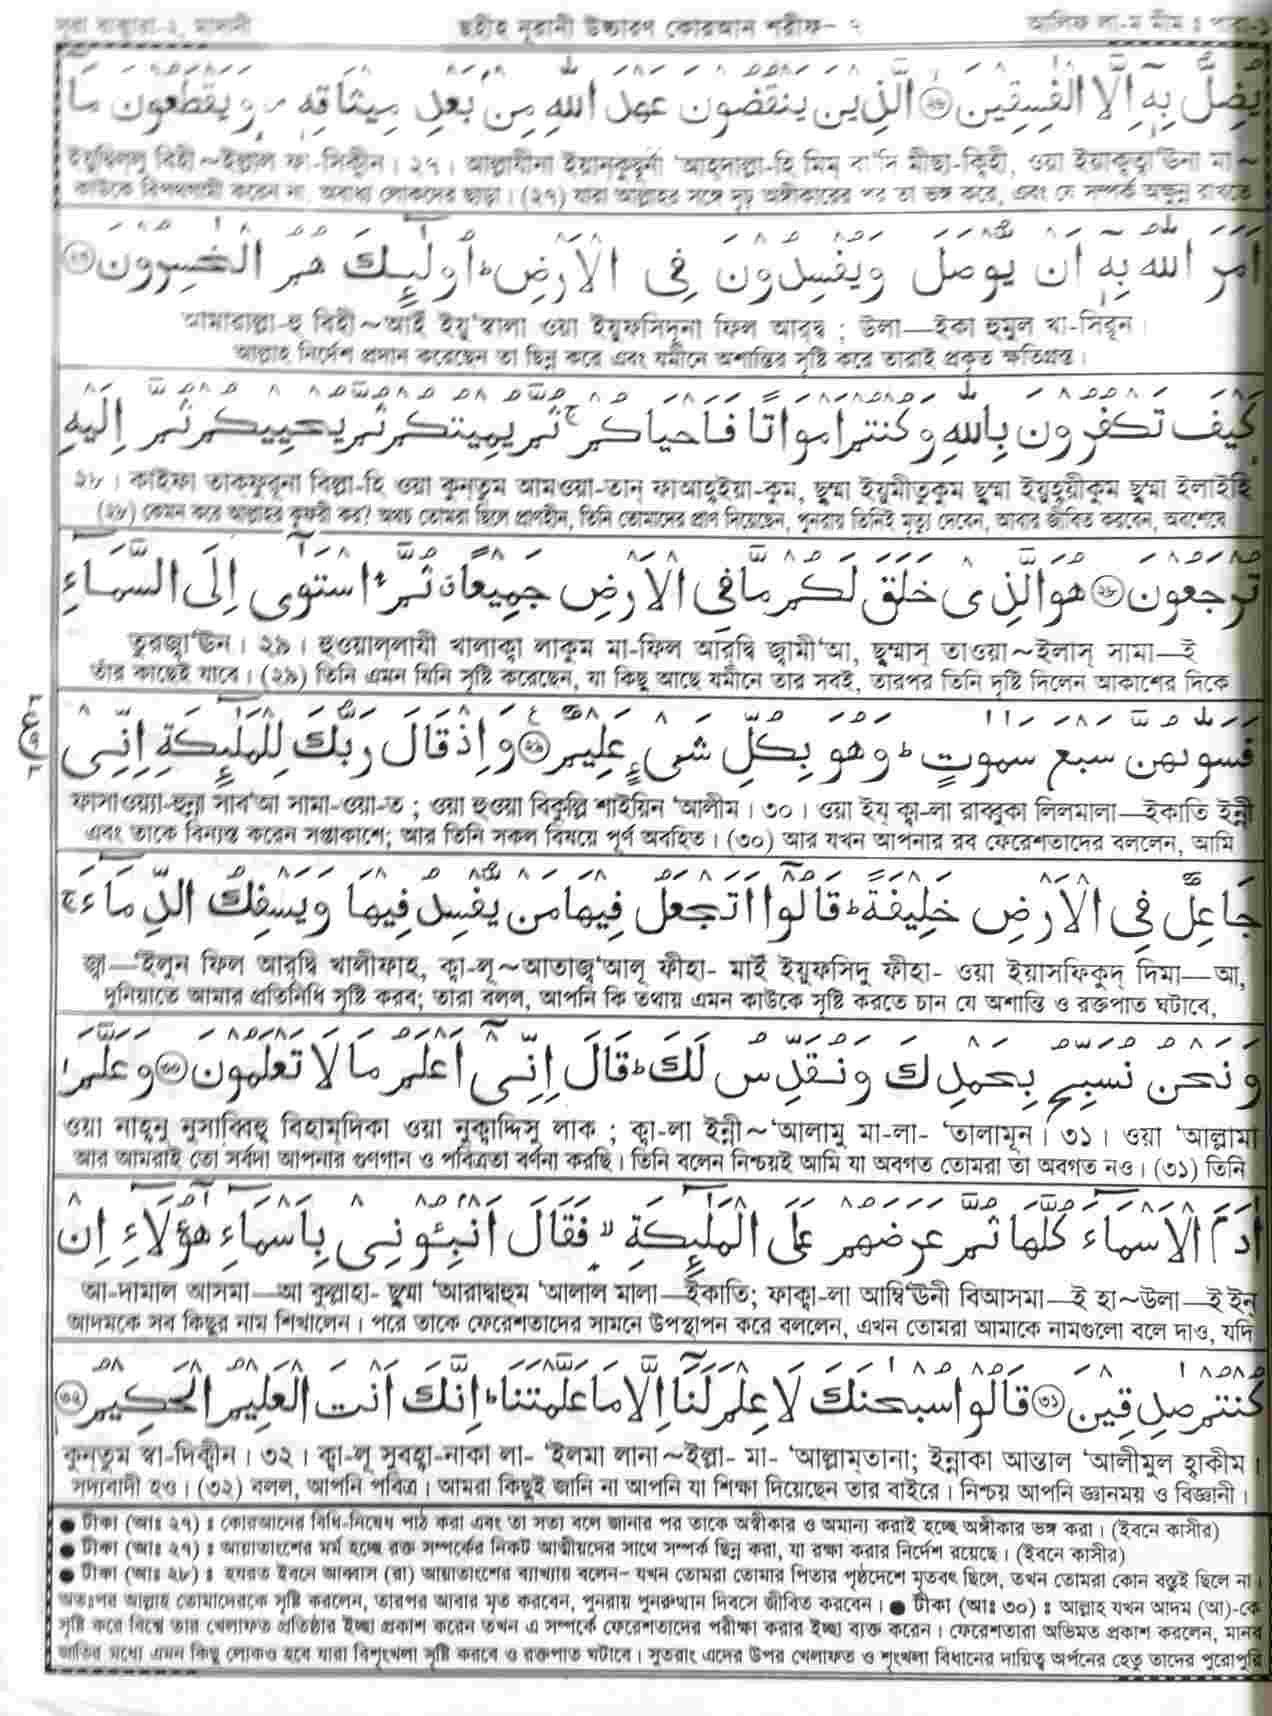 সূরা বাক্বারা-২, মাদানী ছহীহ নূরানী উচ্চারণ কোরআন শরীফ- ৭ আলিফ লা-ম মীম : পারা-১
يُضِلُّ بِهِٓ اِلَّا الْفٰسِقِيْنَ ﴿২৬﴾ الَّذِيْنَ يَنْقُضُوْنَ عَهْدَ اللّٰهِ مِنْۢ بَعْدِ مِيْثَاقِهٖ ۪ وَيَقْطَعُوْنَ مَآ
ইয়ুদ্বিল্লু বিহী~ইল্লাল ফা-সিক্বীন। ২৭। আল্লাযীনা ইয়ান্‌কুদূনা ‘আহ্‌দাল্লা-হি মিম বা‘দি মীছা-ক্বিহী, ওয়া ইয়াক্বত্বা‘ঊনা মা~
কাউকে বিপথগামী করেন না, অবাধ্য লোকদের ছাড়া। (২৭) যারা আল্লাহর সঙ্গে দৃঢ় অঙ্গীকারের পর তা ভঙ্গ করে, এবং যে সম্পর্ক অক্ষুন্ন রাখতে
اَمَرَ اللّٰهُ بِهٖٓ اَنْ يُّوْصَلَ وَيُفْسِدُوْنَ فِى الْاَرْضِ ؕ اُولٰٓئِكَ هُمُ الْخٰسِرُوْنَ ﴿২৭﴾
আমারাল্লা-হু বিহী~আইঁ ইয়ূ’স্বালা ওয়া ইয়ুফসিদূনা ফিল আর্‌দ্ব ; উলা—ইকা হুমুল খা-সিরূন।
আল্লাহ নির্দেশ প্রদান করেছেন তা ছিন্ন করে এবং যমীনে অশান্তির সৃষ্টি করে তারাই প্রকৃত ক্ষতিগ্রস্ত।
كَيْفَ تَكْفُرُوْنَ بِاللّٰهِ وَكُنْتُمْ اَمْوَاتًا فَاَحْيَاكُمْ ۚ ثُمَّ يُمِيْتُكُمْ ثُمَّ يُحْيِيْكُمْ ثُمَّ اِلَيْهِ
২৮। কাইফা তাক্‌ফুরূনা বিল্লা-হি ওয়া কুন্‌তুম আমওয়া-তান্‌ ফাআহ্‌ইয়া-কুম, ছুম্মা ইয়ুমীতুকুম ছুম্মা ইয়ুহ্‌য়ীকুম ছুম্মা ইলাইহি
(২৮) কেমন করে আল্লাহর কুফরী কর? অথচ তোমরা ছিলে প্রাণহীন, তিনি তোমাদের প্রাণ দিয়েছেন, পুনরায় তিনিই মৃত্যু দেবেন, আবার জীবিত করবেন, অবশেষে
تُرْجَعُوْنَ ﴿২৮﴾ هُوَ الَّذِىْ خَلَقَ لَكُمْ مَّا فِى الْاَرْضِ جَمِيْعًا ۗ ثُمَّ اسْتَوٰٓى اِلَى السَّمَآءِ
তুরজ্বা‘ঊন। ২৯। হুওয়াল্‌লাযী খালাক্বা লাকুম মা-ফিল আর্‌দ্বি জ্বামী‘আ, ছুম্মাস্‌ তাওয়া~ইলাস্‌ সামা—ই
তাঁর কাছেই যাবে। (২৯) তিনি এমন যিনি সৃষ্টি করেছেন, যা কিছু আছে যমীনে তার সবই, তারপর তিনি দৃষ্টি দিলেন আকাশের দিকে
فَسَوّٰىهُنَّ سَبْعَ سَمٰوٰتٍ ؕ وَهُوَ بِكُلِّ شَىْءٍ عَلِيْمٌ ﴿২৯﴾ وَاِذْ قَالَ رَبُّكَ لِلْمَلٰٓئِكَةِ اِنِّىْ
ফাসাওয়্যা-হুন্না সাব‘আ সামা-ওয়া-ত ; ওয়া হুওয়া বিকুল্লি শাইয়িন ‘আলীম। ৩০। ওয়া ইয্‌ ক্বা-লা রাব্বুকা লিলমালা—ইকাতি ইন্নী
এবং তাকে বিন্যস্ত করেন সপ্তাকাশে; আর তিনি সকল বিষয়ে পূর্ণ অবহিত। (৩০) আর যখন আপনার রব ফেরেশতাদের বললেন, আমি
جَاعِلٌ فِى الْاَرْضِ خَلِيْفَةً ؕ قَالُوْٓا اَتَجْعَلُ فِيْهَا مَنْ يُّفْسِدُ فِيْهَا وَيَسْفِكُ الدِّمَآءَ ۚ
জ্বা—‘ইলুন ফিল আর্‌দ্বি খালীফাহ, ক্বা-লূ~আতাজ্ব‘আলু ফীহা- মাইঁ ইয়ুফসিদু ফীহা- ওয়া ইয়াসফিকুদ্‌ দিমা—আ,
দুনিয়াতে আমার প্রতিনিধি সৃষ্টি করব; তারা বলল, আপনি কি তথায় এমন কাউকে সৃষ্টি করতে চান যে অশান্তি ও রক্তপাত ঘটাবে,
وَنَحْنُ نُسَبِّحُ بِحَمْدِكَ وَنُقَدِّسُ لَكَ ؕ قَالَ اِنِّىْٓ اَعْلَمُ مَا لَا تَعْلَمُوْنَ ﴿৩০﴾ وَعَلَّمَ
ওয়া নাহ্‌নু নুসাব্বিহু বিহাম্‌দিকা ওয়া নুক্বাদ্দিসু লাক ; ক্বা-লা ইন্নী~‘আলামু মা-লা- ‘তালামূন। ৩১। ওয়া ‘আল্লামা
আর আমরাই তো সর্বদা আপনার গুণগান ও পবিত্রতা বর্ণনা করছি। তিনি বলেন নিশ্চয়ই আমি যা অবগত তোমরা তা অবগত নও। (৩১) তিনি
اٰدَمَ الْاَسْمَآءَ كُلَّهَا ثُمَّ عَرَضَهُمْ عَلَى الْمَلٰٓئِكَةِ ۙ فَقَالَ اَنْۢبِئُوْنِىْ بِاَسْمَآءِ هٰٓؤُلَآءِ اِنْ
আ-দামাল আসমা—আ কুল্লাহা- ছুম্মা ‘আরাদ্বাহুম ‘আলাল মালা—ইকাতি; ফাক্বা-লা আম্বি‘ঊনী বিআসমা—ই হা~উলা—ই ইন্‌
আদমকে সব কিছুর নাম শিখালেন। পরে তাকে ফেরেশতাদের সামনে উপস্থাপন করে বললেন, এখন তোমরা আমাকে নামগুলো বলে দাও, যদি
كُنْتُمْ صٰدِقِيْنَ ﴿৩১﴾ قَالُوْا سُبْحٰنَكَ لَا عِلْمَ لَنَآ اِلَّا مَا عَلَّمْتَنَا ؕ اِنَّكَ اَنْتَ الْعَلِيْمُ الْحَكِيْمُ ﴿৩২﴾
কুন্‌তুম স্বা-দিক্বীন। ৩২। ক্বা-লূ সুবহা-নাকা লা- ‘ইলমা লানা~ইল্লা- মা- ‘আল্লাম্‌তানা; ইন্নাকা আন্তাল ‘আলীমুল হাকীম।
সত্যবাদী হও। (৩২) বলল, আপনি পবিত্র। আমরা কিছুই জানি না আপনি যা শিক্ষা দিয়েছেন তার বাইরে। নিশ্চয় আপনি জ্ঞানময় ও বিজ্ঞানী।
● টীকা (আঃ ২৭) : কোরআনের বিধি-নিষেধ পাঠ করা এবং তা সত্য বলে জানার পর তাকে অস্বীকার ও অমান্য করাই হচ্ছে অঙ্গীকার ভঙ্গ করা। (ইবনে কাসীর)
● টীকা (আঃ ২৭) : আয়াতাংশের মর্ম হচ্ছে রক্ত সম্পর্কের নিকট আত্মীয়দের সাথে সম্পর্ক ছিন্ন করা, যা রক্ষা করার নির্দেশ রয়েছে। (ইবনে কাসীর)
● টীকা (আঃ ২৮) : হযরত ইবনে আব্বাস (রা) আয়াতাংশের ব্যাখ্যায় বলেন- যখন তোমরা তোমার পিতার পৃষ্ঠদেশে মৃতবৎ ছিলে, তখন তোমরা কোন বস্তুই ছিলে না।
অতঃপর আল্লাহ তোমাদেরকে সৃষ্টি করলেন, তারপর আবার মৃত করবেন, পুনরায় পুনরুত্থান দিবসে জীবিত করবেন। ● টীকা (আঃ ৩০) : আল্লাহ যখন আদম (আ)-কে
সৃষ্টি করে বিশ্বে তার খেলাফত প্রতিষ্ঠার ইচ্ছা প্রকাশ করেন তখন এ সম্পর্কে ফেরেশতাদের পরীক্ষা করার ইচ্ছা ব্যক্ত করেন। ফেরেশতারা অভিমত প্রকাশ করলেন, মানব
জাতির মধ্যে এমন কিছু লোকও হবে যারা বিশৃংখলা সৃষ্টি করবে ও রক্তপাত ঘটাবে। সুতরাং এদের উপর খেলাফত ও শৃংখলা বিধানের দায়িত্ব অর্পনের হেতু তাদের পুরোপুরি